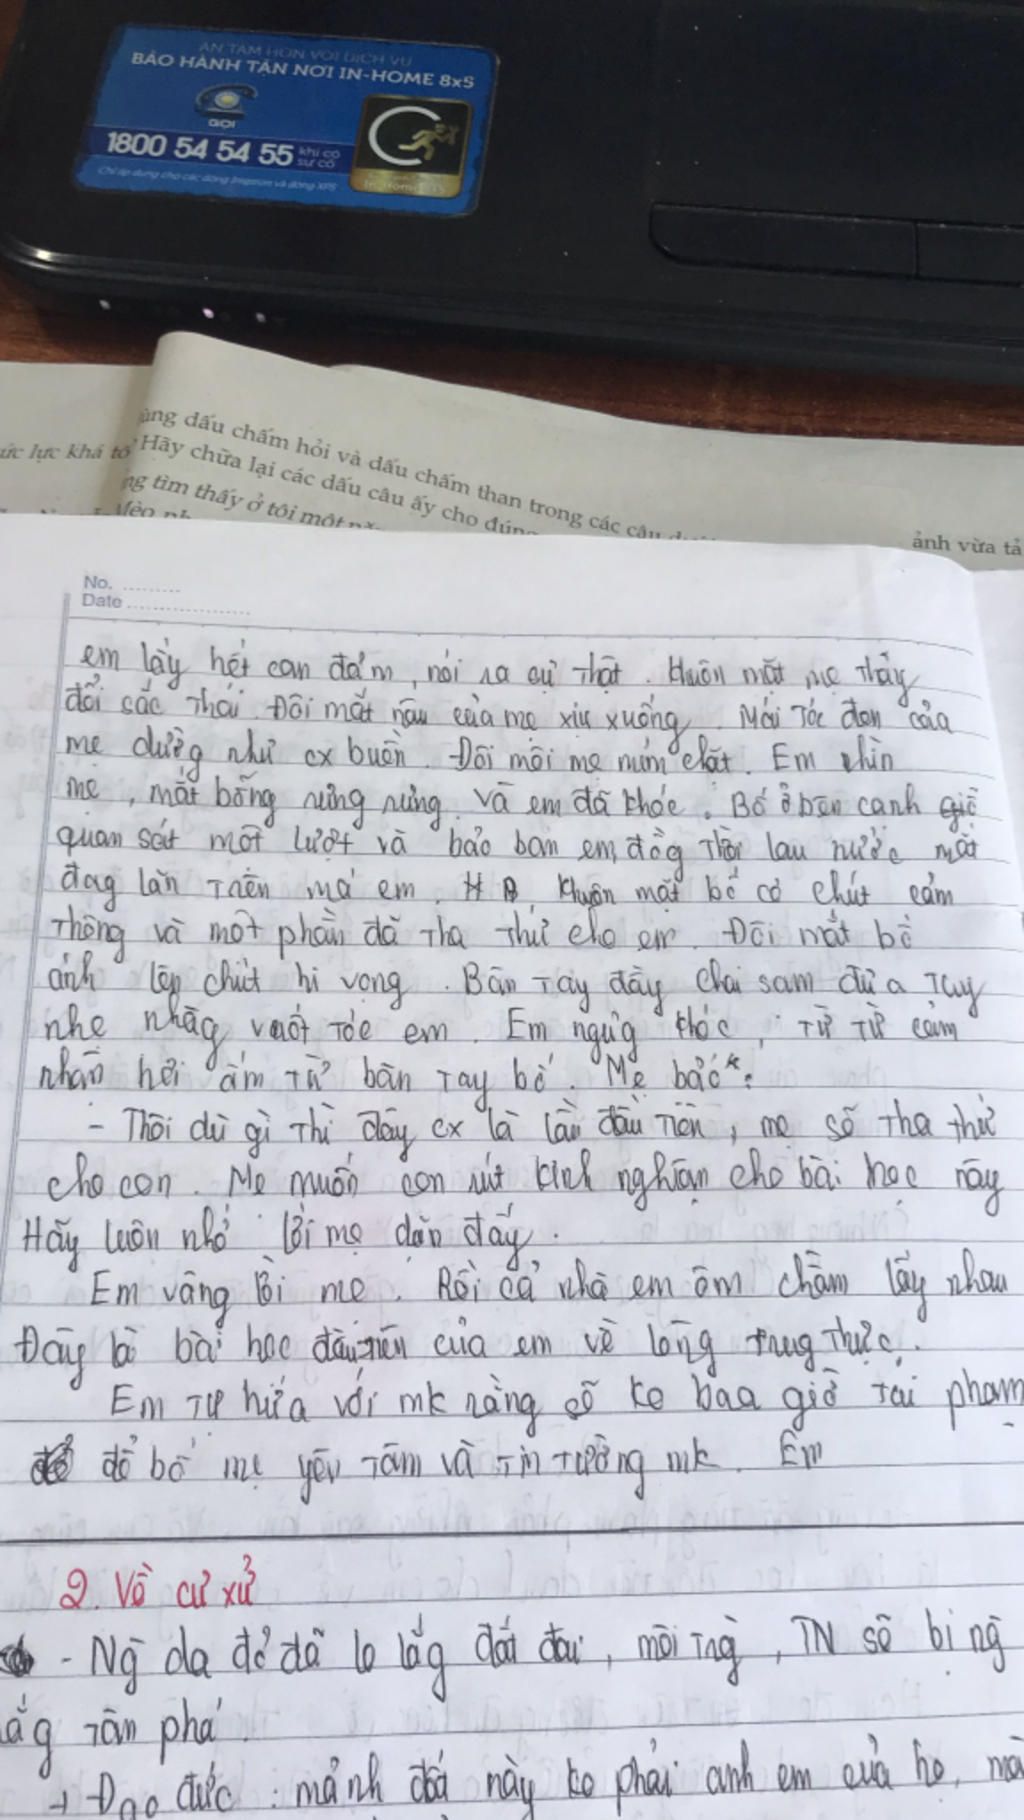 AN TÂM HƠN VỚI DỊCH VỤ
BẢO HÀNH TẬN NƠI IN-HOME 8x5
GỌI
1800 54 54 55 khi có sự cố
Chỉ áp dụng cho các dòng Inspiron và dòng XPS
ùng dấu chấm hỏi và dấu chấm than trong các câu
ức lực khá tố
Hãy chữa lại các dấu câu ấy cho đúng
ng tìm thấy ở tôi một
Mèo
ảnh vừa tả
No.
Date
em lấy hết can đảm, nói ra sự thật. Khuôn mặt mẹ thay
đổi sắc thái. Đôi mắt nâu của mẹ xịu xuống. Mái tóc đen của
mẹ dường như cx buồn. Đôi môi mẹ mím chặt. Em nhìn
mẹ, mắt bỗng rưng rưng và em đã khóc. Bố ở bên cạnh giờ
quan sát một lượt và bảo ban em, đồg thời lau nước mắt
đag lăn trên má em. Khuôn mặt bố có chút cảm
thông và một phần đã tha thứ cho em. Đôi mắt bố
ánh lên chút hi vọng. Bàn tay đầy chai sạm đưa tay
nhẹ nhàg vuốt tóc em. Em ngừg khóc, từ từ cảm
nhận hơi ấm từ bàn tay bố. Mẹ bảo*:
- Thôi dù gì thì đây cx là lần đầu tiên, mẹ sẽ tha thứ
cho con. Mẹ muốn con rút kinh nghiệm cho bài học này
Hãy luôn nhớ lời mẹ dặn đấy.
Em vâng lời mẹ. Rồi cả nhà em ôm chầm lấy nhau
Đây là bài học đầu tiên của em về lòng trug thực.
Em tự hứa với mk rằng sẽ ko bao giờ tái phạm
để bố mẹ yên tâm và tin tưởng mk. Em
2. Về cư xử
- Ng̃ da đỏ đã lo lắg đất đai, môi trg̀, TN sẽ bị ng̃
ắg tàn phá
→ Đạo đức: mảnh đất này ko phải anh em của họ, mà